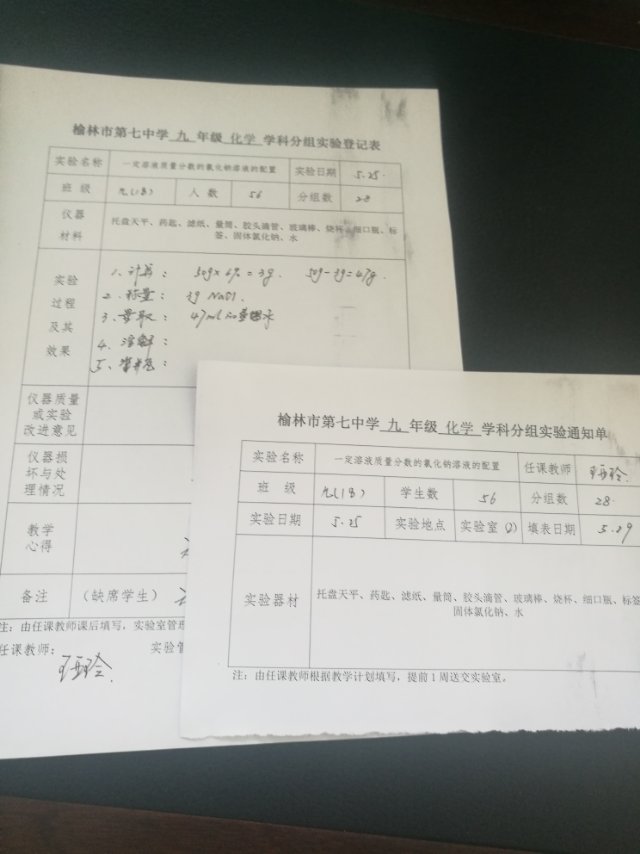 榆林市第七中学 九 年级 化学 学科分组实验登记表
实验名称 一定溶液质量分数的氯化钠溶液的配置 实验日期 5.25.
班 级 九(18) 人 数 56 分组数 28
仪器
材料
托盘天平、药匙、滤纸、量筒、胶头滴管、玻璃棒、烧杯、细口瓶、标
签、固体氯化钠、水
实验
过程
及其
效果
1、计算: 50g×6%=3g. 50g-3g=47g
2、称量: 3g
3、量取: 47ml
4、溶解:
5、
仪器质量
或实验
改进意见
仪器损
坏与处
理情况
教学
心得
备注 (缺席学生)
注:由任课教师课后填写,实验室管理
任课教师: 实验管
榆林市第七中学 九 年级 化学 学科分组实验通知单
实验名称 一定溶液质量分数的氯化钠溶液的配置 任课教师
班 级 九(18) 学生数 56 分组数 28.
实验日期 5.25 实验地点 实验室(2) 填表日期
实验器材
托盘天平、药匙、滤纸、量筒、胶头滴管、玻璃棒、烧杯、细口瓶、标签
固体氯化钠、水
注:由任课教师根据教学计划填写,提前1周送交实验室。